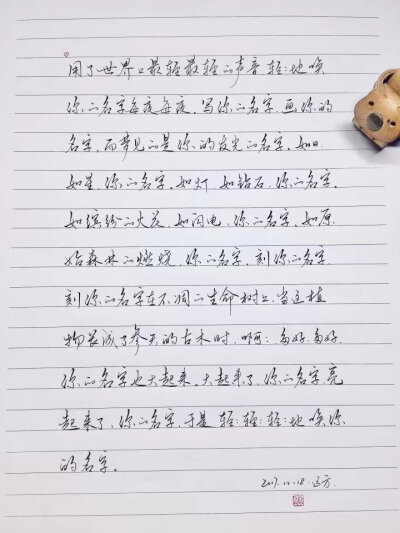 用了世界上最轻最轻的声音轻轻地唤
你的名字每夜每夜。写你的名字，画你的
名字，而梦见的是你的发光的名字。如日
如星，你的名字。如灯，如钻石，你的名字。
如缤纷的火花，如闪电，你的名字。如原
始森林的燃烧，你的名字。刻你的名字
刻你的名字在不凋的生命树上，当这植
物长成了参天的古木时，啊，多好，多好，
你的名字也大起来。大起来了，你的名字，亮
起来了，你的名字，于是轻轻轻轻轻轻地唤你
的名字。
2017.12.18.远方